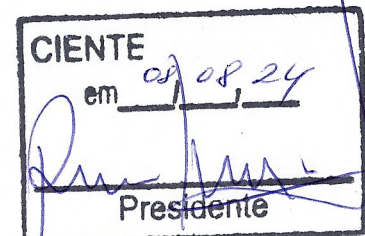 CIENTE
em 08/08/24
Presidente